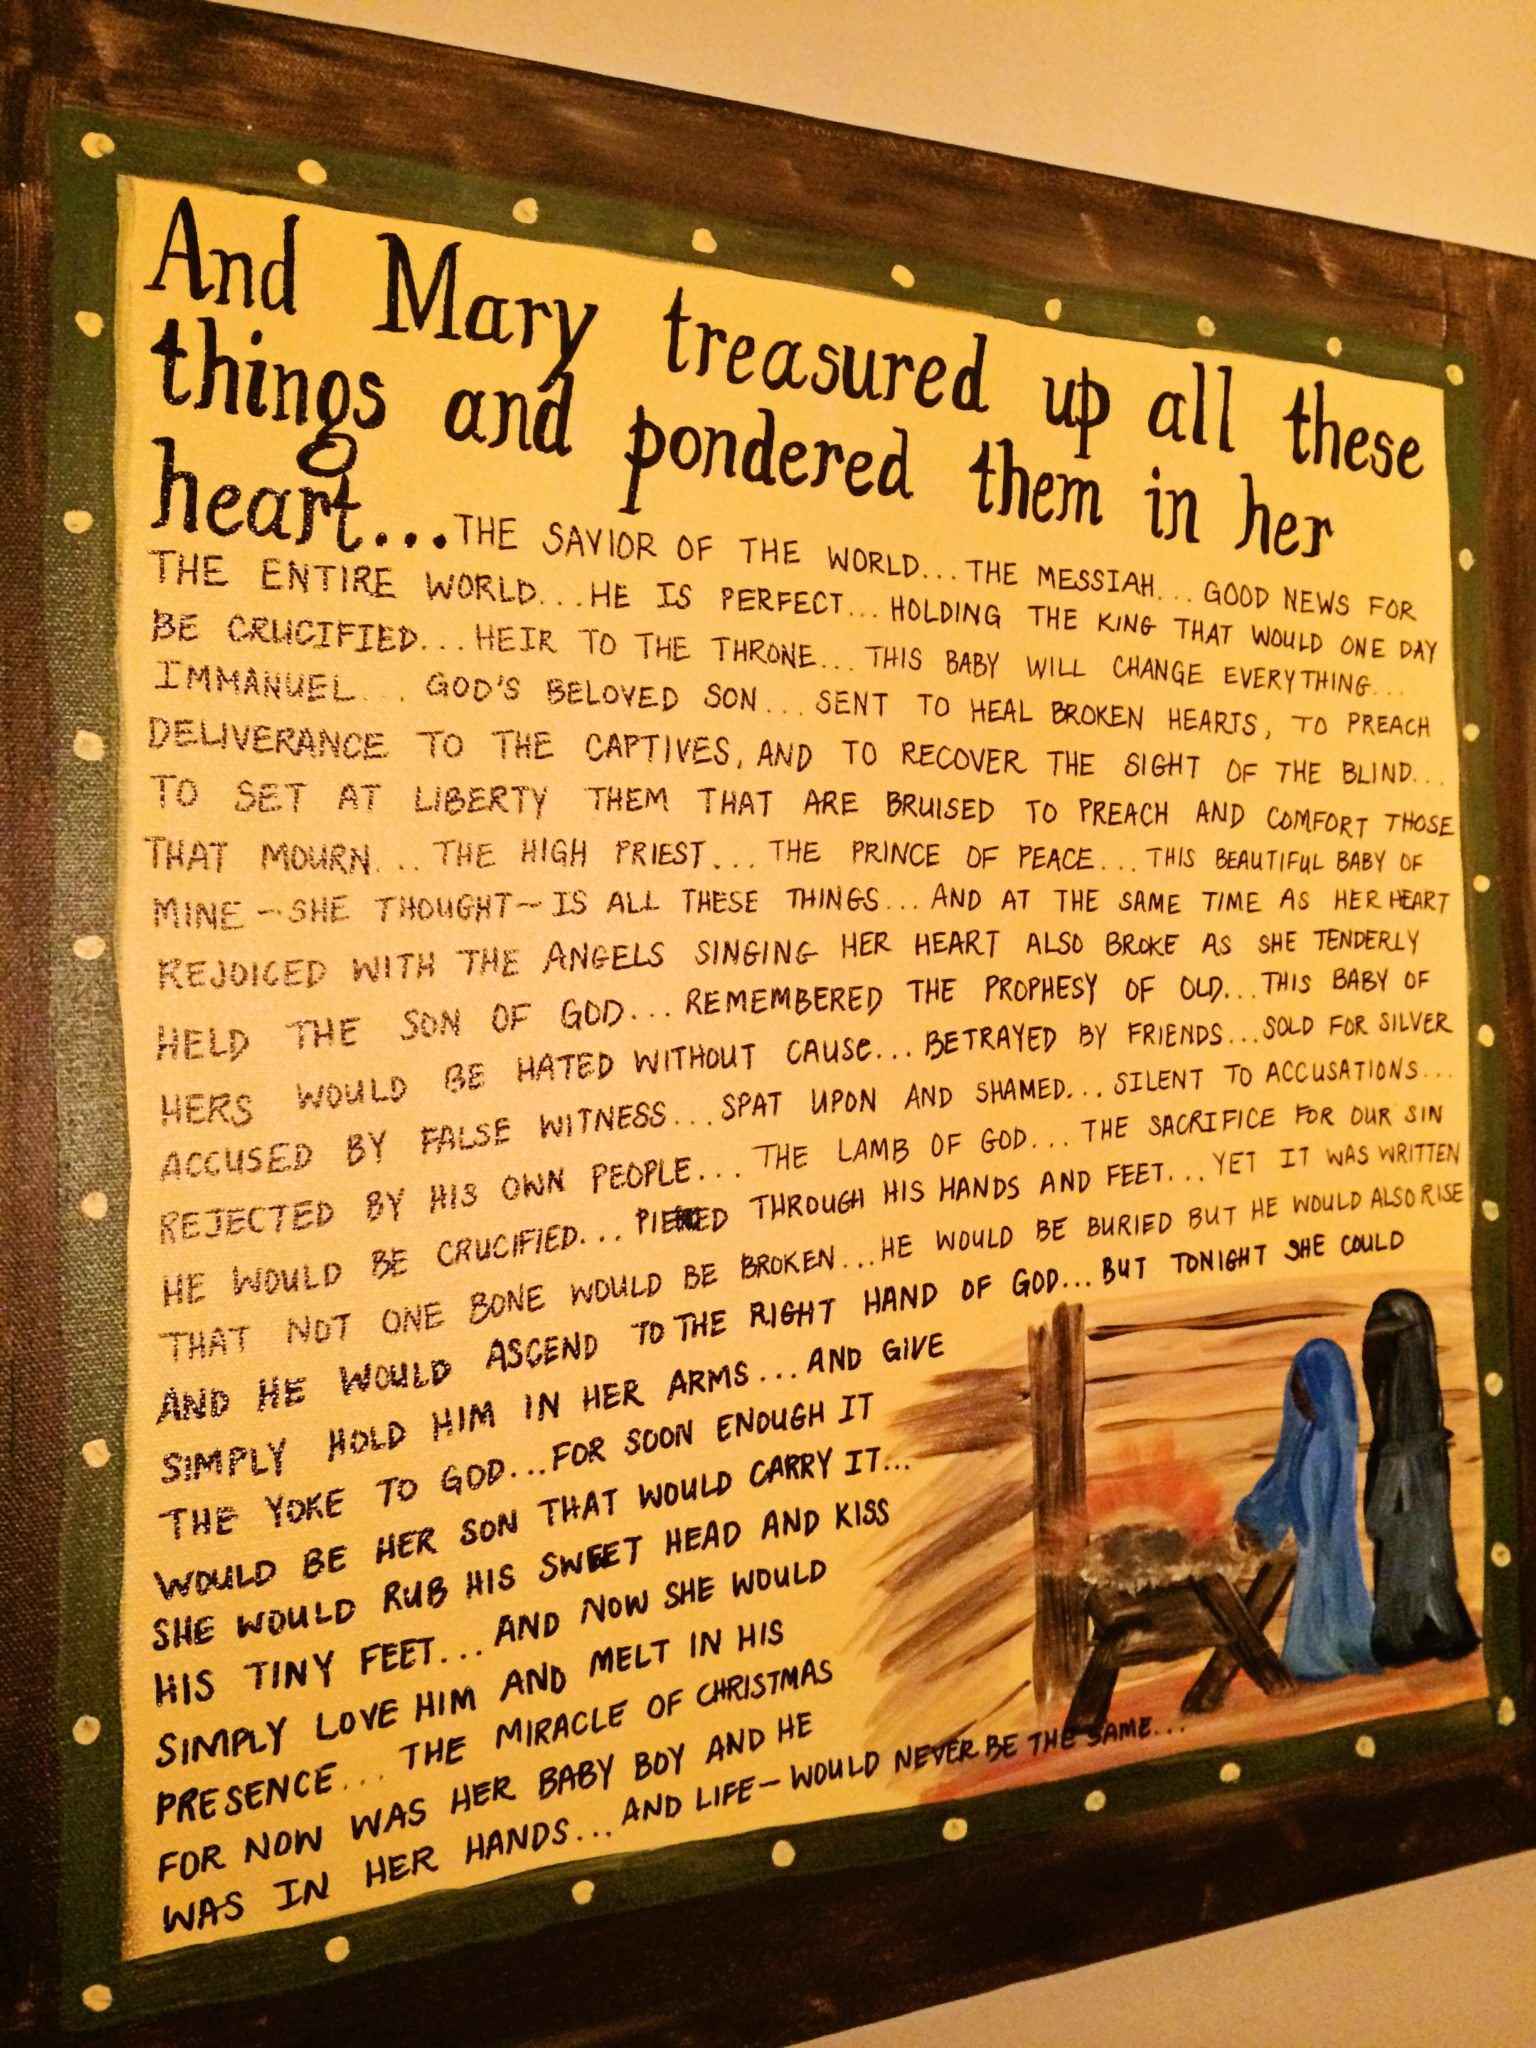 And Mary treasured up all these
things and pondered them in her
heart...THE SAVIOR OF THE WORLD...THE MESSIAH...GOOD NEWS FOR
THE ENTIRE WORLD...HE IS PERFECT...HOLDING THE KING THAT WOULD ONE DAY
BE CRUCIFIED...HEIR TO THE THRONE...THIS BABY WILL CHANGE EVERYTHING...
IMMANUEL...GOD'S BELOVED SON...SENT TO HEAL BROKEN HEARTS, TO PREACH
DELIVERANCE TO THE CAPTIVES, AND TO RECOVER THE SIGHT OF THE BLIND...
TO SET AT LIBERTY THEM THAT ARE BRUISED TO PREACH AND COMFORT THOSE
THAT MOURN...THE HIGH PRIEST...THE PRINCE OF PEACE...THIS BEAUTIFUL BABY OF
MINE ~SHE THOUGHT~ IS ALL THESE THINGS...AND AT THE SAME TIME AS HER HEART
REJOICED WITH THE ANGELS SINGING HER HEART ALSO BROKE AS SHE TENDERLY
HELD THE SON OF GOD...REMEMBERED THE PROPHESY OF OLD...THIS BABY OF
HERS WOULD BE HATED WITHOUT CAUSE...BETRAYED BY FRIENDS...SOLD FOR SILVER
ACCUSED BY FALSE WITNESS...SPAT UPON AND SHAMED...SILENT TO ACCUSATIONS...
REJECTED BY HIS OWN PEOPLE...THE LAMB OF GOD...THE SACRIFICE FOR OUR SIN
HE WOULD BE CRUCIFIED... THROUGH HIS HANDS AND FEET...YET IT WAS WRITTEN
THAT NOT ONE BONE WOULD BE BROKEN...HE WOULD BE BURIED BUT HE WOULD ALSO RISE
AND HE WOULD ASCEND TO THE RIGHT HAND OF GOD...BUT TONIGHT SHE COULD
SIMPLY HOLD HIM IN HER ARMS...AND GIVE
THE YOKE TO GOD...FOR SOON ENOUGH IT
WOULD BE HER SON THAT WOULD CARRY IT...
SHE WOULD RUB HIS SWEET HEAD AND KISS
HIS TINY FEET...AND NOW SHE WOULD
SIMPLY LOVE HIM AND MELT IN HIS
PRESENCE...THE MIRACLE OF CHRISTMAS
FOR NOW WAS HER BABY BOY AND HE
WAS IN HER HANDS...AND LIFE~WOULD NEVER BE THE SAME...